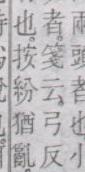 兩頭者也小
者箋云弓反
也按紛猶亂